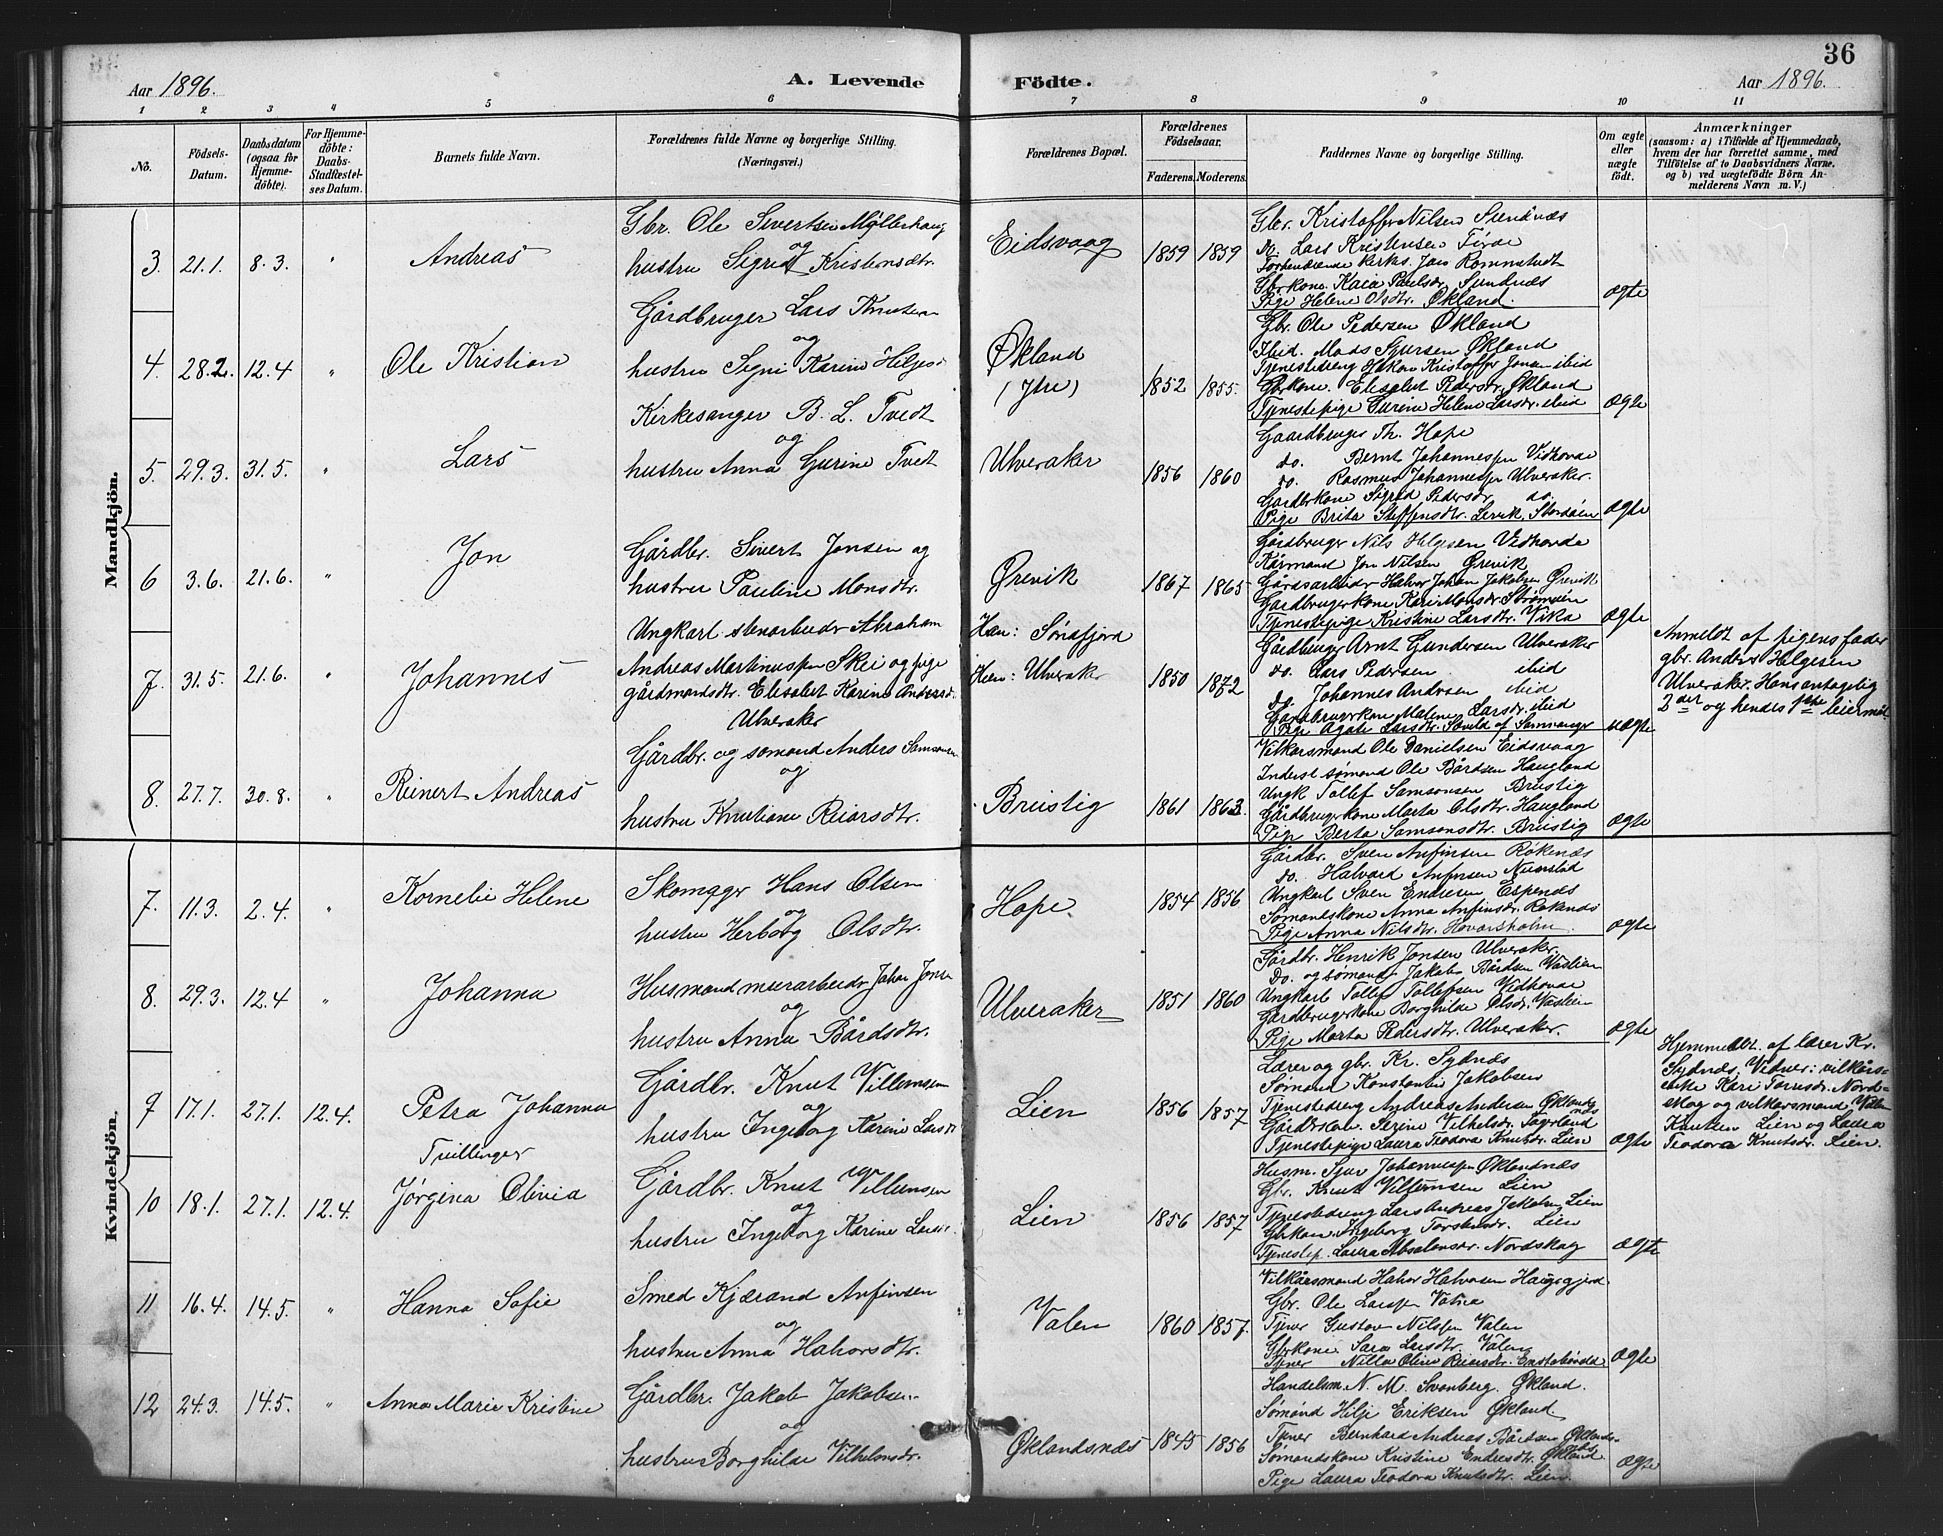 36
Aar 1896.
A. Levende Födte.
Aar 1896.
1 2 3 4 5 6 7 8 9 10 11
No.
Födsels-Datum.
Daabsdatum (ogsaa for Hjemmedöbte).
For Hjemmedöbte: Daabs-Stadfæstelses Datum.
Barnets fulde Navn.
Forældrenes fulde Navne og borgerlige Stilling. (Næringsvei.)
Forældrenes Bopæl.
Forældrenes Födselsaar.
Faderens. Moderens.
Faddernes Navne og borgerlige Stilling.
Om ægte eller uægte födt.
Anmærkninger
(saasom: a) i Tilfælde af Hjemmedaab, hvem der har forrettet samme, med Tilföielse af to Daabsvidners Navne, og b) ved uægtefödte Börn Anmelderens Navn m. V.)
Mandkjön.
3. 21.1. 8.3. " Andreas
Gbr. Ole Sivertsen Myllerhaug
og
hustru Sigrid Kristensdtr.
Eidsvaag 1859 1859
Gbr. Kristoffer Nilsen Sundnæs
Do. Lars Kristensen
Forhenværende kirkes. Jørs
Gbrkone Kaia Paulsdr. Sundnæs
Pige Helene Olsdtr. Økland.
ægte
4. 28.2. 12.4 " Ole Kristian
Gårdbruger Lars Knutsen
og
hustru Signi Karine Hiljesd.
Økland
(Ytre)
1852 1855.
Gbr. Ole Pedersen Økland
Ibid. Mads Sjursen Økland
Tjenestedreng Håkon Kristoffer Jonsen ibid
Gbrkone. Elisabet Pedersdr. Økland
Tjenestepige Gurine Helene Larsdr. ibid
ægte
5. 29.3. 31.5. " Lars
Kirkesanger B. L. Tvedt
og
hustru Anna Gurine Tvedt
Ulveraker 1856 1860
Gaardbruger Th. Hope
do. Bernt Johannessen Vidhovde
do. Rasmus Johannessen Ulveraker.
Gårdbrkone Sigrid Pedersdr do.
Pige Brita Steffensdtr. Lervik, Stordøen
ægte
6 3.6. 21.6. " Jon
Gårdbr. Sivert Jonsen og
hustru Pauline Monsdtr.
Ørevik 1867 1865
Gårdbruger Nils Helgesen Vidhovde
Kårmand Jon Nilsen Ørevik
Gårdsarbeider Halvor Johan Jakobsen Ørevik
Gårdbrugerkone Kari Monsdr. Strømøen
Tjenestepige Kristine Larsdtr. Vika
ægte
7. 31.5. 21.6. " Johannes
Ungkarl stenarbeider Abraham
Andreas Martinussen Skei og pige
gårdmandsdtr. Elisabet Karine Andersdr.
Ulveraker
Han: Sønafjord
Hun: Ulveraker
1850 1872
Gårdbruger Arnt Gundersen Ulveraker
do. Lars Pedersen ibid
do. Johannes Andersen ibid
Gårdbrugerkon Malene Larsdr. ibid
Pige Agate Larsdtr. af Samnanger
uægte
Anmeldt af pigens fader
gbr. Anders Helgesen
Ulveraker. Hans antagelig
2det og hendes 1ste leiermål
8. 27.7. 30.8. " Reinert Andreas
Gårdbr. og sømand Anders Samsonsen
og
hustru Knutiane Reiarsdtr.
Bruistig 1861 1863.
Vilkårsmand Ole Danielsen Eidsvaag
Inderst sømand Ole Bårdsen Haugland
Ungk. Tollef Samsonsen Bruistig
Gårdbrugerkone Marta Olsdtr. Haugland
Pige Berta Samsonsdtr. Bruistig
ægte
Kvindekjön.
7. 11.3. 2.4. " Kornelie Helene
Skomager Hans Olsen
og
hustru Herborg Olsdtr.
Hope. 1854 1856
Gårdbr. Sven Anfinsen Røkenæs
do. Halvard Anfinsen
Ungkarl Sven Endresen Espenæs
Sømandskone Anna Anfinsdr. Røkenæs
Pige Anna Nilsdtr. Hovarsholm.
ægte
8. 29.3. 12.4 " Johanna
Husmand murarbeider Johan Jonsen
og
hustru Anna Bårdsdtr.
Ulveraker 1851 1860
Gårdbr. Henrik Jonsen Ulveraker.
Do. og sømand Jakob Bårdsen Våslien
Ungkarl Tollef Tollefsen Vidhovde
Gårdbrugerkone Borghilde Olsdr. Våslien
Pige Marta Pedersdtr. Ulveraker.
ægte
9 17.1. 27.1. 12.4. Petra Johanna
Tvillinger
Gårdbr. Knut Villumsen
og
hustru Ingeborg Karine Larsdr.
Lien 1856 1857
Lærer og gbr. Kr. Sydnæs
Sømand Konstantin Jakobsen
Tjenestedreng Andreas Andersen Øklandsnæs
Gårdbrkone. Serine Vilhelsdr.
Tjenestepige Laura Teodora Knutsdr. Lien
ægte
Hjemmedøbt. af lærer Kr.
Sydnæs, Vidner: vilkårs-
enke Kari Nord-
skog og vilkårsmand
Knutsen Lien og Laura
Teodora Knutsdr. Lien.
10 18.1. 27.1. 12.4. Jørgina Olivia
Gårdbr. Knut Villumsen
og
hustru Ingeborg Karine Larsdr.
Lien 1856 1857
Husm. Sjur Johannessen Øklandnæs
Gbr. Knut Villumsen Lien
Tjenestedreng Lars Andreas Jakobsen Lien
Gbrkone. Ingeborg Torstensdr. Lien
Tjenestep. Laura Absalonsdr. Nordskog
ægte
11 16.4. 14.5. " Hanna Sofie
Smed Kjærand Anfinsen
og
hustru Anna Halvorsdtr.
Valen 1860 1857.
Vilkårsmand Halvor Halvorsen Haugsgjerd
Gbr. Ole Larsen
Tjener Gustav Nilsen Valen
Gbrkone Sara Larsdtr. Valen
Tjener Nilla Oline Reiarsdtr.
ægte
12 24.3. 14.5. " Anna Marie Kristine
Gårdbr. Jakob Jakobsen
og
hustru Borghilde Vilhelmsdr.
Øklandsnæs 1845 1856
Handelsm. N. M. Svanberg. Økland.
Sømand Hilje Eriksen Økland.
Tjener Bernhard Andreas Bårdsen
Sømandskone Kristine Endresdtr. Økland
Pige Laura Teodora Knutsdtr. Lien.
ægte